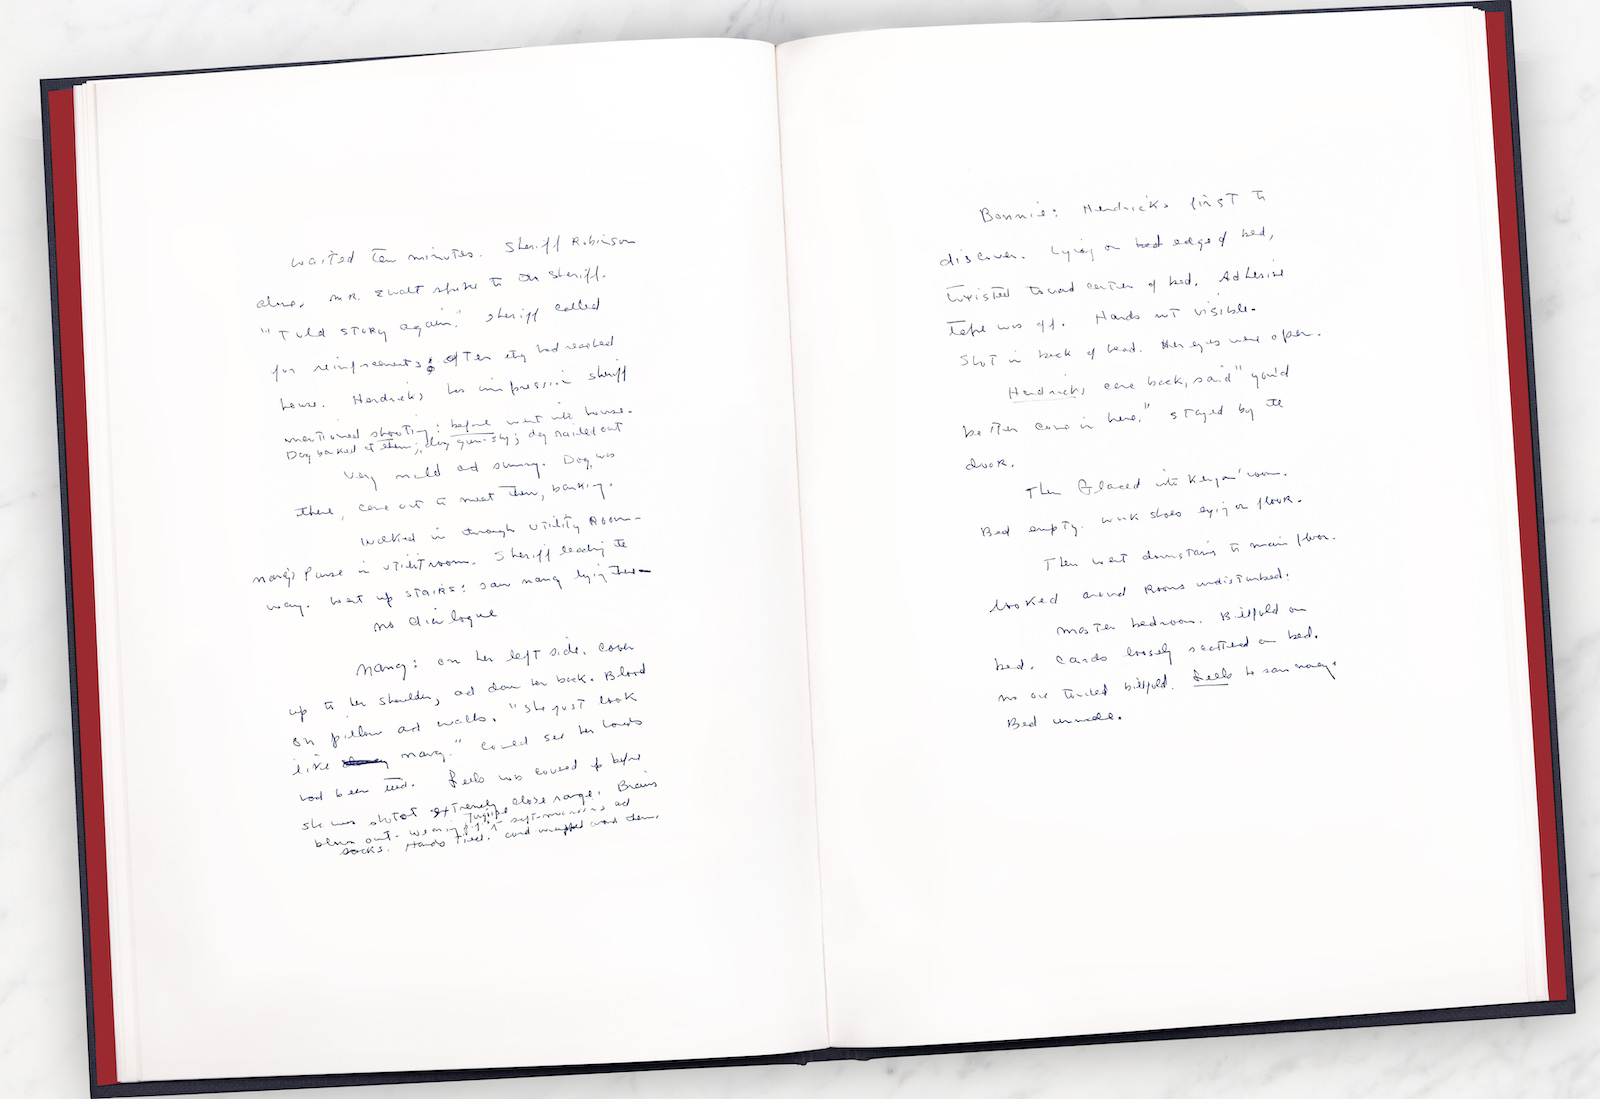 waited ten minutes. Sheriff Robinson
alone. MR. Ewalt spoke to the Sheriff.
"Told story again." Sheriff called
for reinforcements; after they had reached
house. Hendricks has impression sheriff
mentioned shooting: before went into house.
Dog barked at them; dog gun-shy; dog raced out
Very mild and sunny. Dog was
there, came out to meet them, barking.
Walked in through utility Room-
Nancy's Purse in utility room. Sheriff leading the
way. Went up stairs: saw Nancy lying there
no dialogue
Nancy: on her left side. Cover
up to her shoulder, and down her back. Blood
on pillow and walls. "She just look
like Nancy." Could see her hands
had been tied. Feels was covered up before
she was shot at extremely close range. Brains
blown out. Wearing and
socks. Hands tied. Cord wrapped around them.
Bonnie: Hendricks first to
discover. Lying on bed edge of bed,
twisted toward center of bed. Adhesive
tape was off. Hands not visible.
Shot in back of head. Her eyes were open.
Hendricks came back, said "you'd
better come in here." Stayed by the
door.
Then Glaced into Kenyon' room.
Bed empty. Work shoes lying on floor.
Then went downstairs to main floor.
Looked around Rooms undisturbed.
Master bedroom. Billfold on
bed. Cards loosely scattered on bed.
no one touched billfold. Feels he saw Nancy.
Bed unmade.